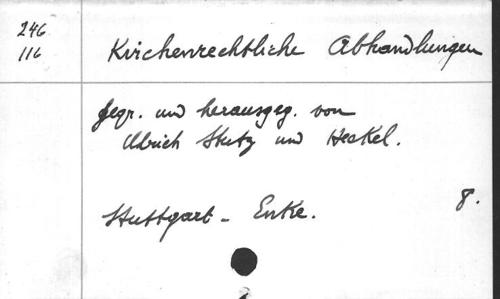 246
116
Kirchenrechtliche Abhandlungen
gegr. und herausgeg. von
Ulrich Stutz und Heckel.
Stuttgart - Enke.
8.